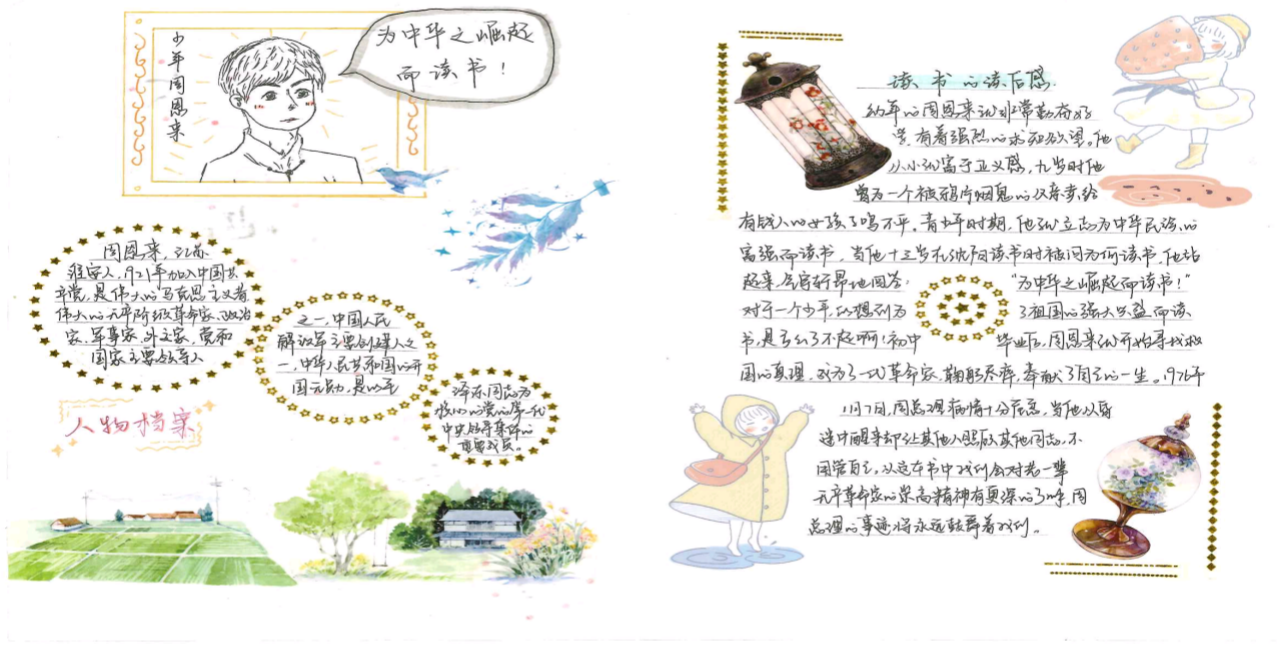 少年周恩来
为中华之崛起
而读书！
周恩来，江苏
淮安人，1921年加入中国共
产党，是伟大的马克思主义者，
伟大的无产阶级革命家、政治
家、军事家、外交家，党和
国家主要领导人
之一，中国人民
解放军主要创建人之
一，中华人民共和国的开
国元勋，是以毛
泽东同志为
核心的党的第一代
中央领导集体的
重要成员。
人物档案
读书的读后感
幼年的周恩来就非常勤奋好
学，有着强烈的求知欲望。他
从小就富于正义感，九岁时他
曾为一个被鸦片烟鬼的父亲卖给
有钱人的女孩子鸣不平。青少年时期，他就立志为中华民族的
富强而读书，当他十三岁在沈阳读书时被问为何读书，他站
起来，气宇轩昂地回答：“为中华之崛起而读书！”
对于一个少年，能想到为了祖国的强大兴盛而读
书，是多么了不起啊！初中毕业后，周恩来就开始寻找救
国的真理，成为了一代革命家，鞠躬尽瘁，奉献了自己的一生。1976年
1月7日，周总理病情十分危急，当他从昏
迷中醒来却让其他人照顾其他同志，不
用管自己，从这本书中我们会对老一辈
无产革命家的崇高精神有更深的了解，周
总理的事迹将永远鼓舞着我们。